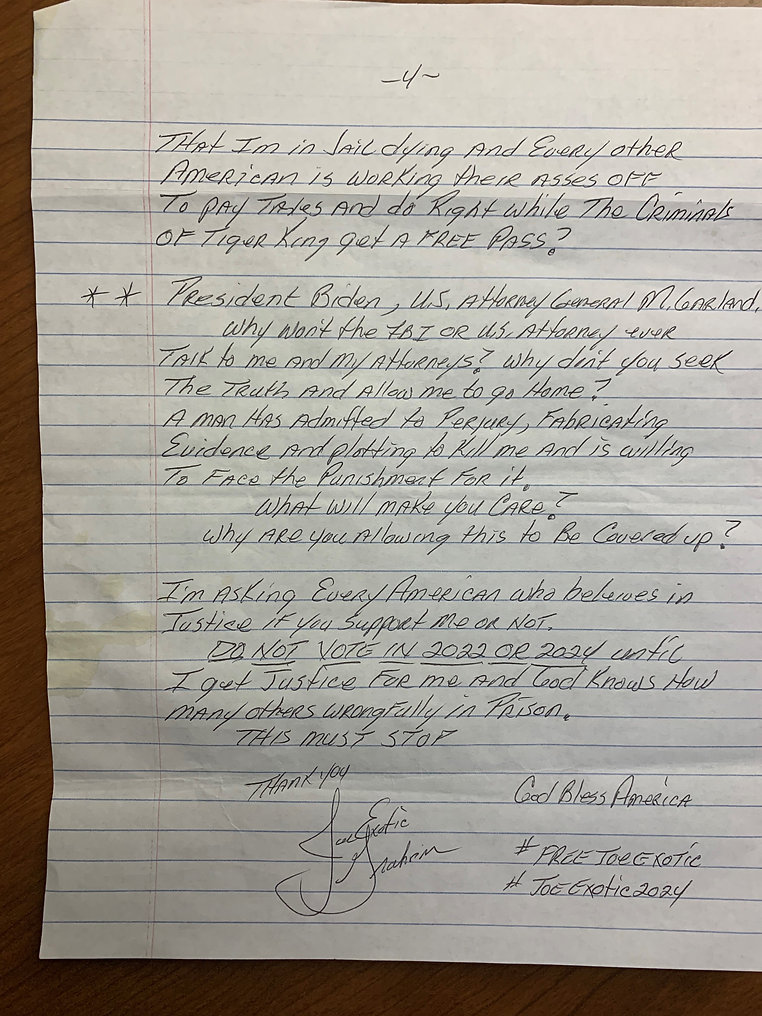 -4~
THAT I'm in Jail dying And Every other
American is working their Asses off
To pay Taxes And do Right while The Criminals
OF Tiger King get A FREE PASS?
** President Biden, U.S. Attorney General M. Garland,
why won't the FBI OR U.S. Attorney ever
Talk to me and my Attorneys? Why don't you seek
The Truth And Allow me to go Home?
A man Has Admitted to Perjury, Fabricating
Evidence And plotting to Kill me And is willing
To Face the Punishment For it.
What will make you Care?
Why are you Allowing this to Be Covered up?
I'm Asking Every American who believes in
Justice if you Support me or not.
DO NOT VOTE IN 2022 OR 2024 until
I get Justice For me And God Knows How
many others wrongfully in Prison.
THIS MUST STOP
THANK YOU
God Bless America
Joe Exotic
# FREE JOE EXOTIC
# JOE EXotic 2024